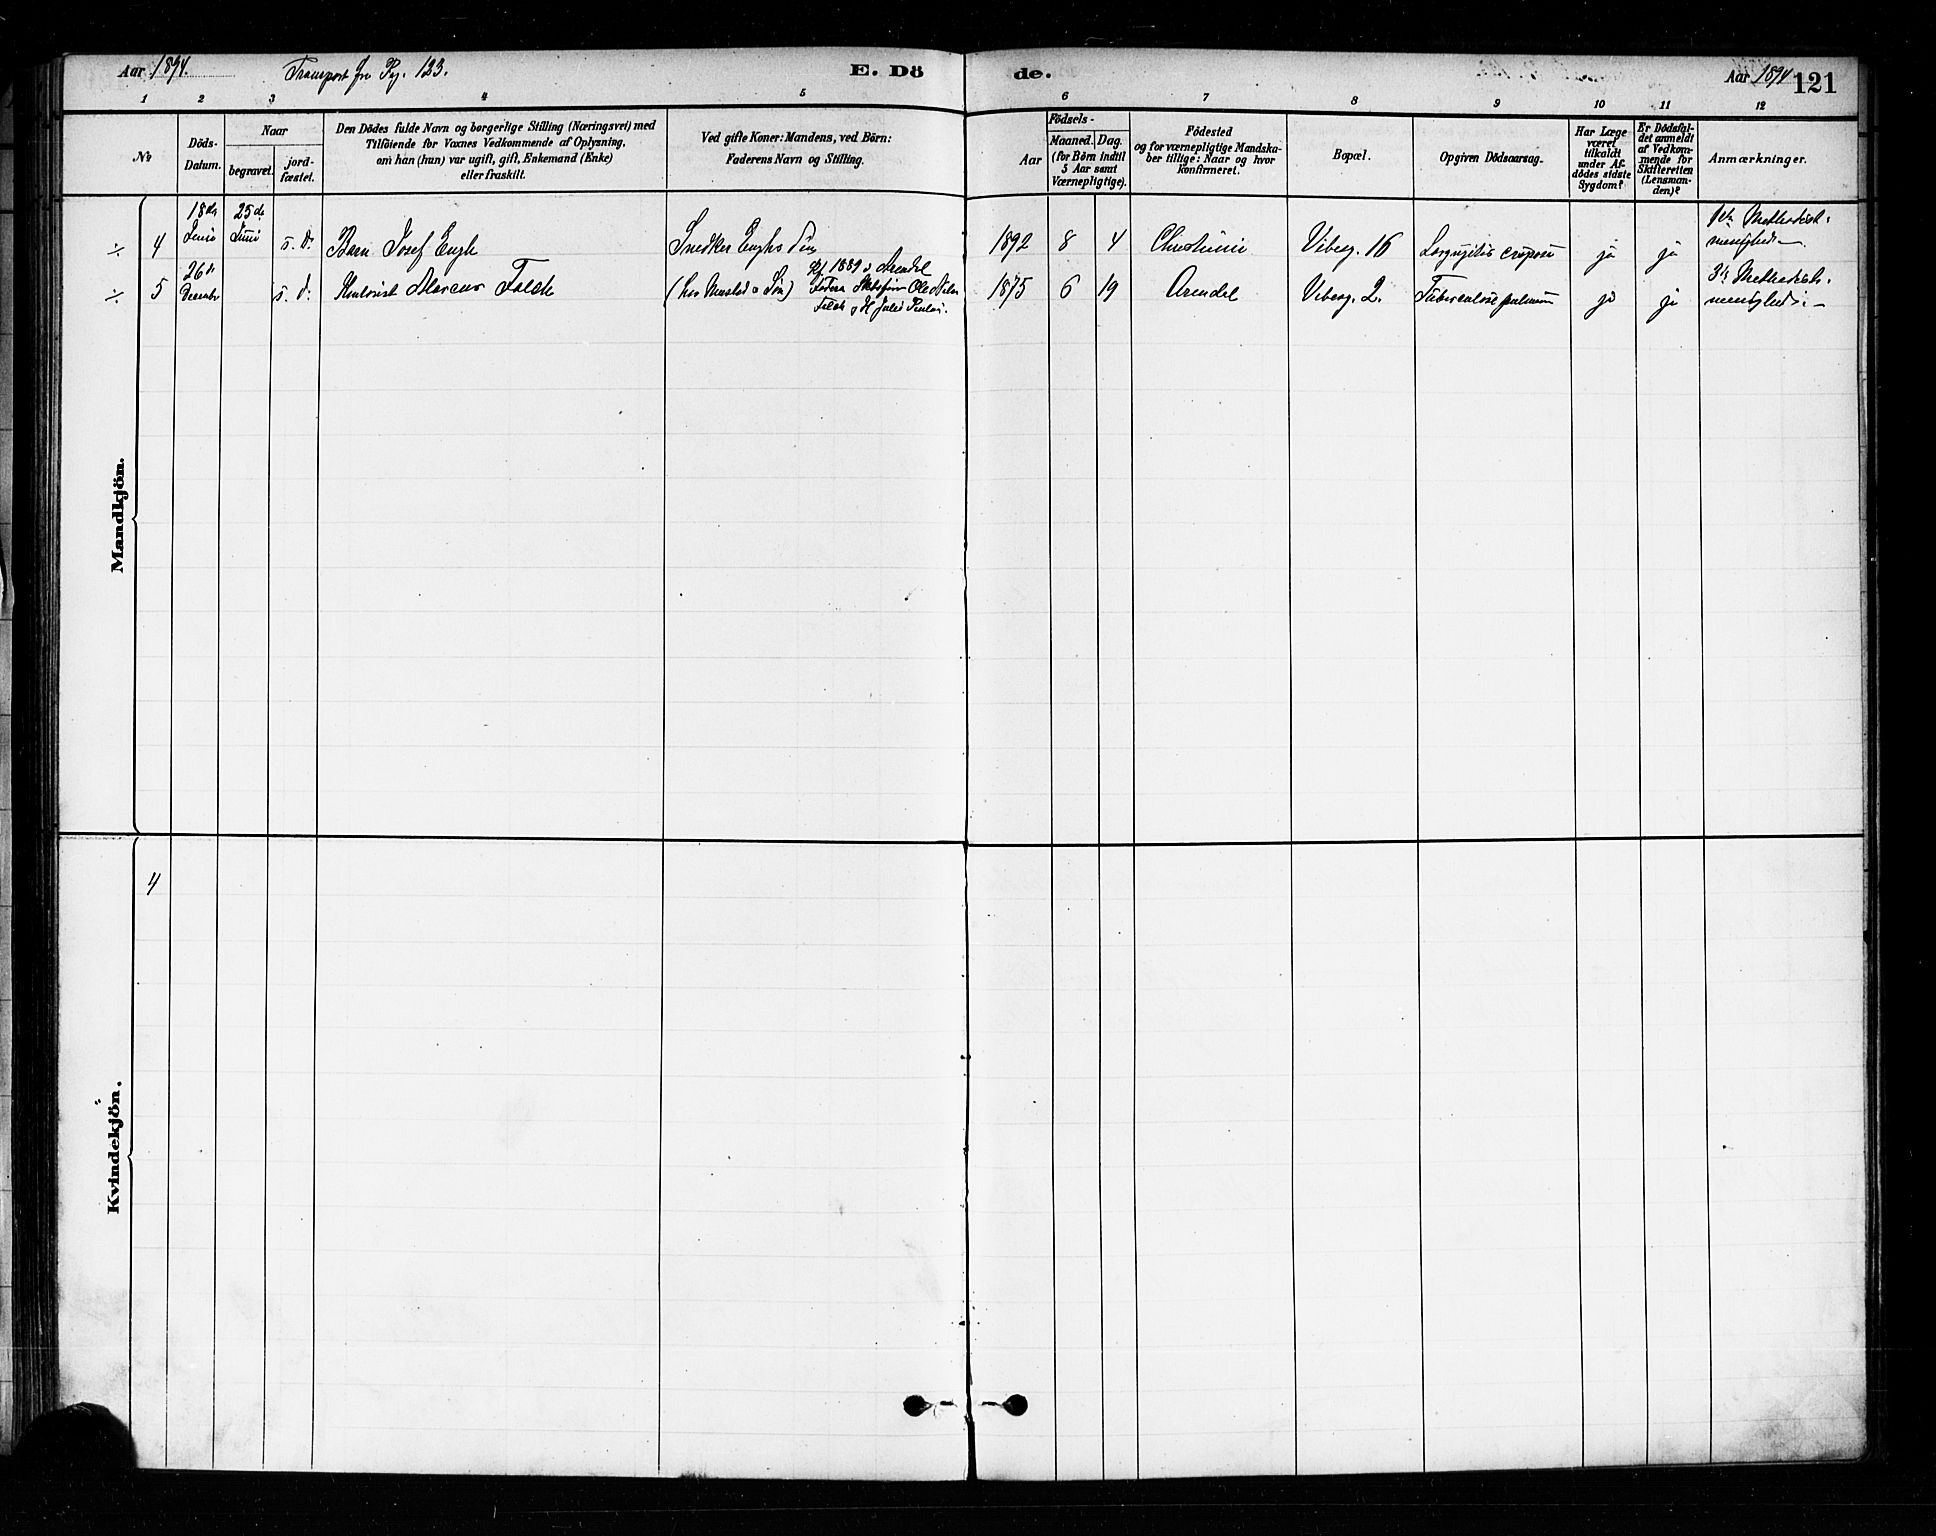 Aar 1894. Transport fra Pg. 123. E. Dö de. Aar 1894 121
1 2 3 4 5 6 7 8 9 10 11 12
No
Döds-Datum.
Naar
begravet.
jord-fæstet.
Den Dödes fulde Navn og borgerlige Stilling (Næringsvei) med
Tilföiende for Voxnes Vedkommende af Oplysning,
om han (hun) var ugift, gift, Enkemand (Enke)
eller fraskilt.
Ved gifte Koner: Mandens, ved Börn:
Faderens Navn og Stilling.
Födsels-
Aar
Maaned. Dag.
(for Börn indtil
5 Aar samt
Værnepligtige).
Födested
og for værnepligtige Mandska-
ber tillige: Naar og hvor
konfirmeret.
Bopæl.
Opgiven Dödsaarsag.
Har Læge
været
tilkaldt
under Af-
dödes sidste
Sygdom?
Er Dödsfal-
det anmeldt
af Vedkom-
mende for
Skifteretten
(Lensman-
den)?
Anmærkninger.
Mandkjön.
÷ 4 18de Juni 25de Juni s. d. Barn Josef Engh Snedker Enghs Søn 1892 8 4 Christiania Vibeg. 16 Laryngitis cruposa ja ja 1ste Methodist-
menighed
÷ 5 26de Decembr s. d. Kontorist Marcus Falck (hos Mustad & Søn) Kf. 1889 i Arendal
Ole
Falck og H. 1875 6 19 Arendal Vibeg. 2. Tuberculose pulmum ja ja 3die Methodist-
menighed
Kvindekjön.
4